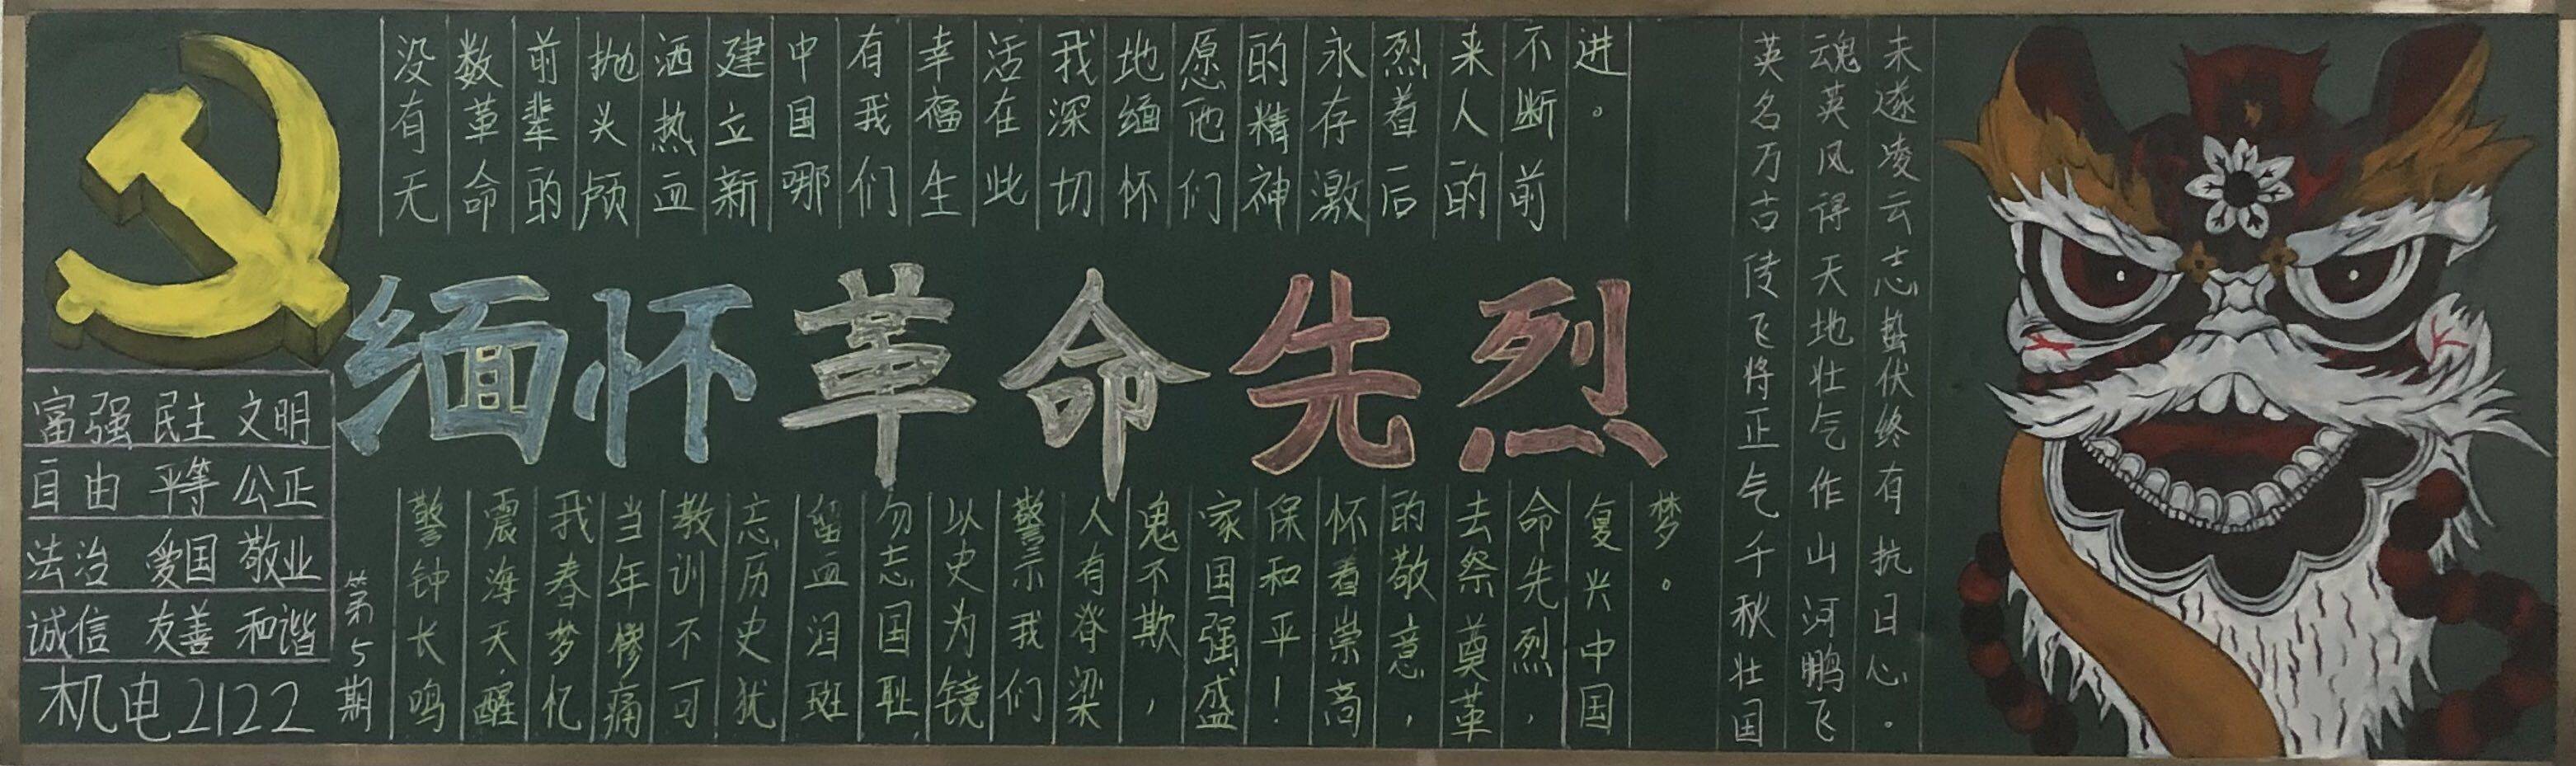 没有无
数革命
前辈的
抛头颅
洒热血
建立新
中国哪
有我们
幸福生
活在此
我深切
地缅怀
愿他们
的精神
永存激
烈着后
来人的
不断前
进。
缅怀革命先烈
富强 民主 文明
自由 平等 公正
法治 爱国 敬业
诚信 友善 和谐
机电2122
第5期
警钟长鸣
震海天,醒
我春梦忆
当年惨痛
教训不可
忘历史犹
留血泪斑
勿忘国耻
以史为镜
警示我们
人有脊梁
鬼不欺，
家国强盛
保和平！
怀着崇高
的敬意，
去祭奠革
命先烈，
复兴中国
梦。
英名万古传飞将正气千秋壮国
魂英风得天地壮气作山河鹏飞
未遂凌云志蛰伏终有抗日心。